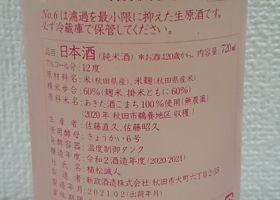 No.6は濾過を最小限に抑えた生原酒です。
必ず冷蔵庫で保管してください。
品目 日本酒 (純米酒) ※お酒は20歳から。内容量:720ml
アルコール分:12度
原材料名:米(秋田県産)、米麹(秋田県産米)
精米歩合:60%(麹米、掛米ともに60%)
原料米:あきた酒こまち100%使用(無農薬)
(2020年 秋田市鵜養地区収穫)
生産者:佐藤直久、佐藤昭久
使用酵母:きょうかい6号
発酵容器:温度制御タンク
醸造年度:令和2酒造年度(2020-2021)
氏名:植松誠人
製造者:新政酒造株式会社 秋田市大町六丁目2-35
製造年月:2021.02(出荷年月)